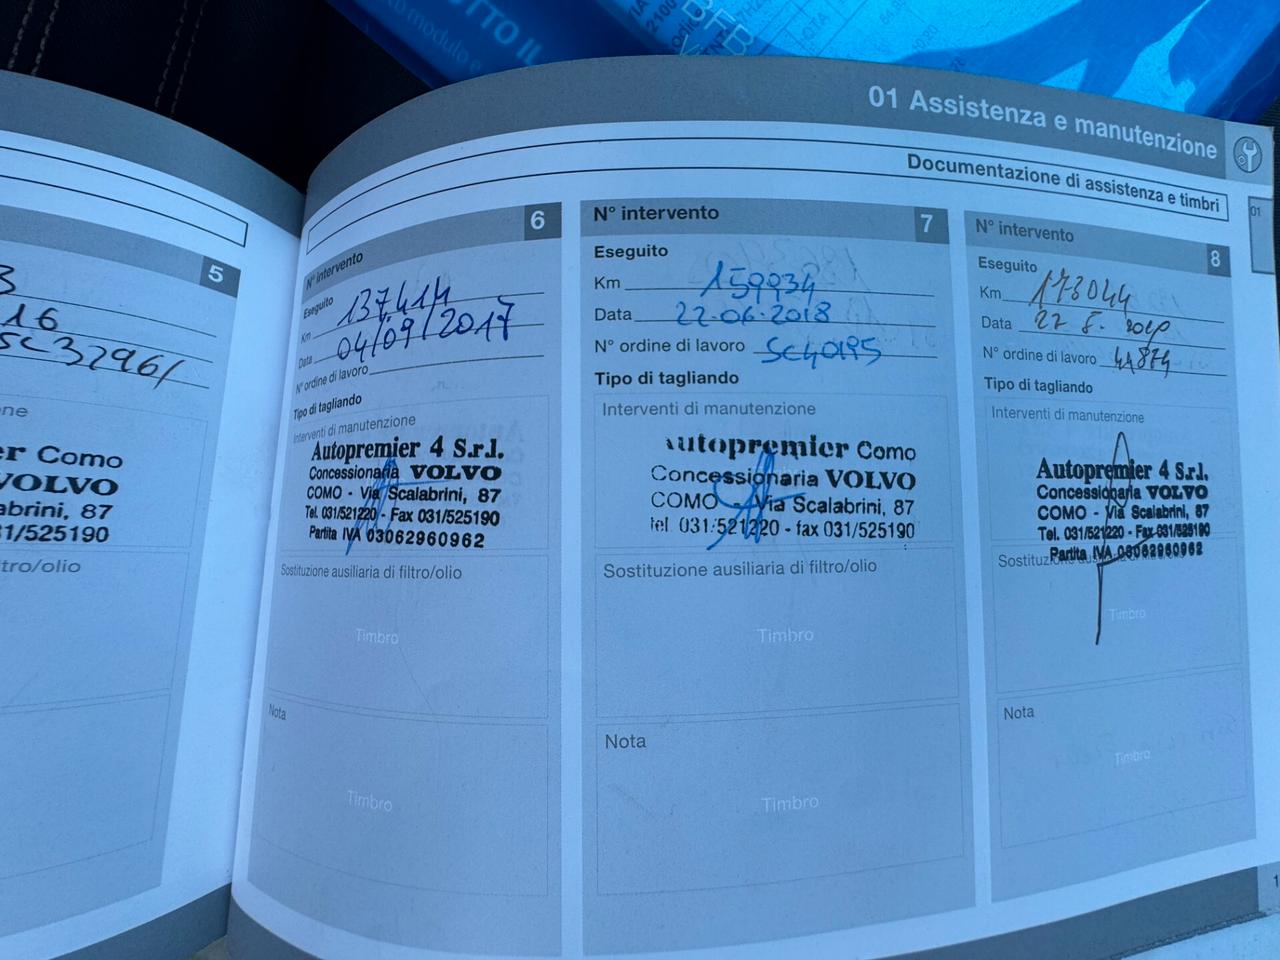 TTO IL
modulo e
2100
BFB
01 Assistenza e manutenzione
Documentazione di assistenza e timbri
01
5
3
16
SC32961
ne
er Como
VOLVO
abrini, 87
1/525190
tro/olio
N° intervento 6
Eseguito
Km 137414
Data 04/09/2017
N° ordine di lavoro
Tipo di tagliando
Interventi di manutenzione
Autopremier 4 S.r.l.
Concessionaria VOLVO
COMO - Via Scalabrini, 87
Tel. 031/521220 - Fax 031/525190
Partita IVA 03062960962
Sostituzione ausiliaria di filtro/olio
Timbro
Nota
Timbro
N° intervento 7
Eseguito
Km 159934
Data 22-06-2018
N° ordine di lavoro SC40195
Tipo di tagliando
Interventi di manutenzione
Autopremier Como
Concessionaria VOLVO
COMO - Via Scalabrini, 87
tel 031/521220 - fax 031/525190
Sostituzione ausiliaria di filtro/olio
Timbro
Nota
Timbro
N° intervento 8
Eseguito
Km 173044
Data 27 8.
N° ordine di lavoro 44874
Tipo di tagliando
Interventi di manutenzione
Autopremier 4 S.r.l.
Concessionaria VOLVO
COMO - Via Scalabrini, 87
Tel. 031/521220 - Fax 031/525190
Partita IVA 03062960962
Timbro
Nota
Timbro
1